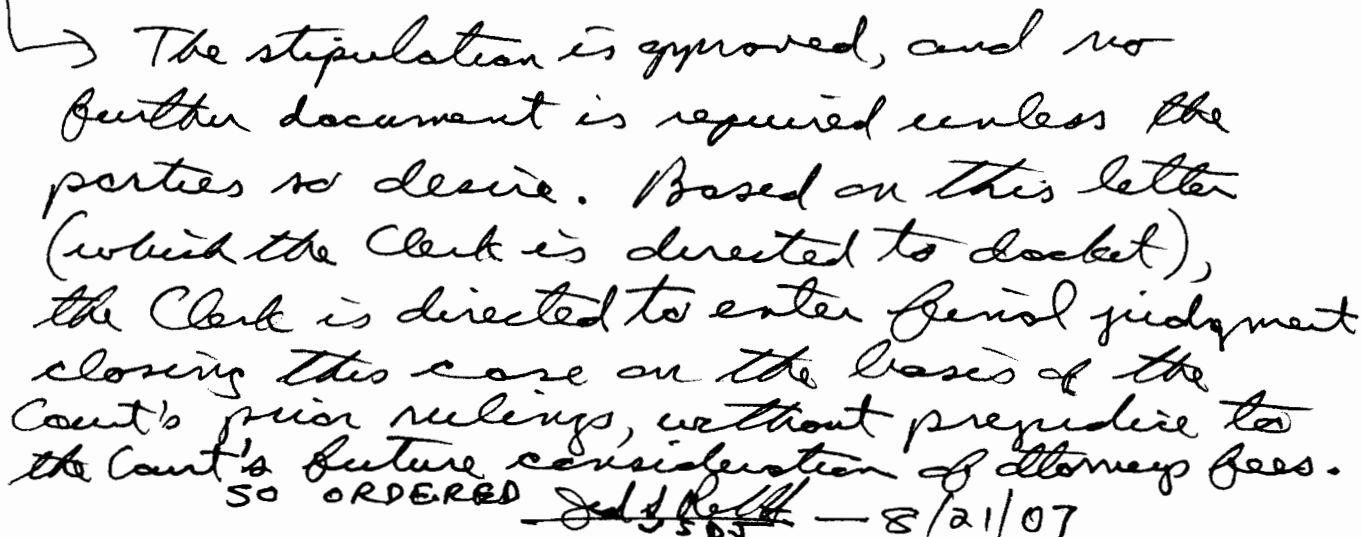 The stipulation is approved, and no
further document is required unless the
parties so desire. Based on this letter
(which the Clerk is directed to docket),
the Clerk is directed to enter final judgment
closing this case on the basis of the
Court's prior rulings, without prejudice to
the Court's future consideration of attorneys fees.
SO ORDERED Jed S Rakoff — 8/21/07
USDJ